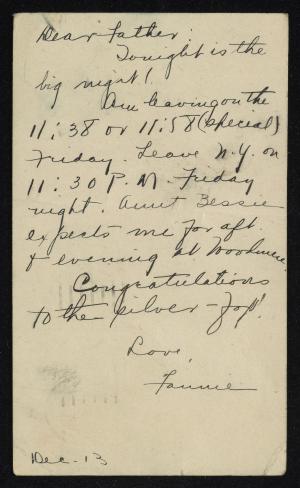 Dear Father:
Tonight is the
big night!
Am leaving on the
11:38 or 11:58 (special)
Friday. Leave N.Y. on
11:30 P.M. Friday
night. Aunt Bessie
expects me for aft.
& evening at Woodmere.
Congratulations
to the silver-fox!
Love,
Fannie
Dec-13